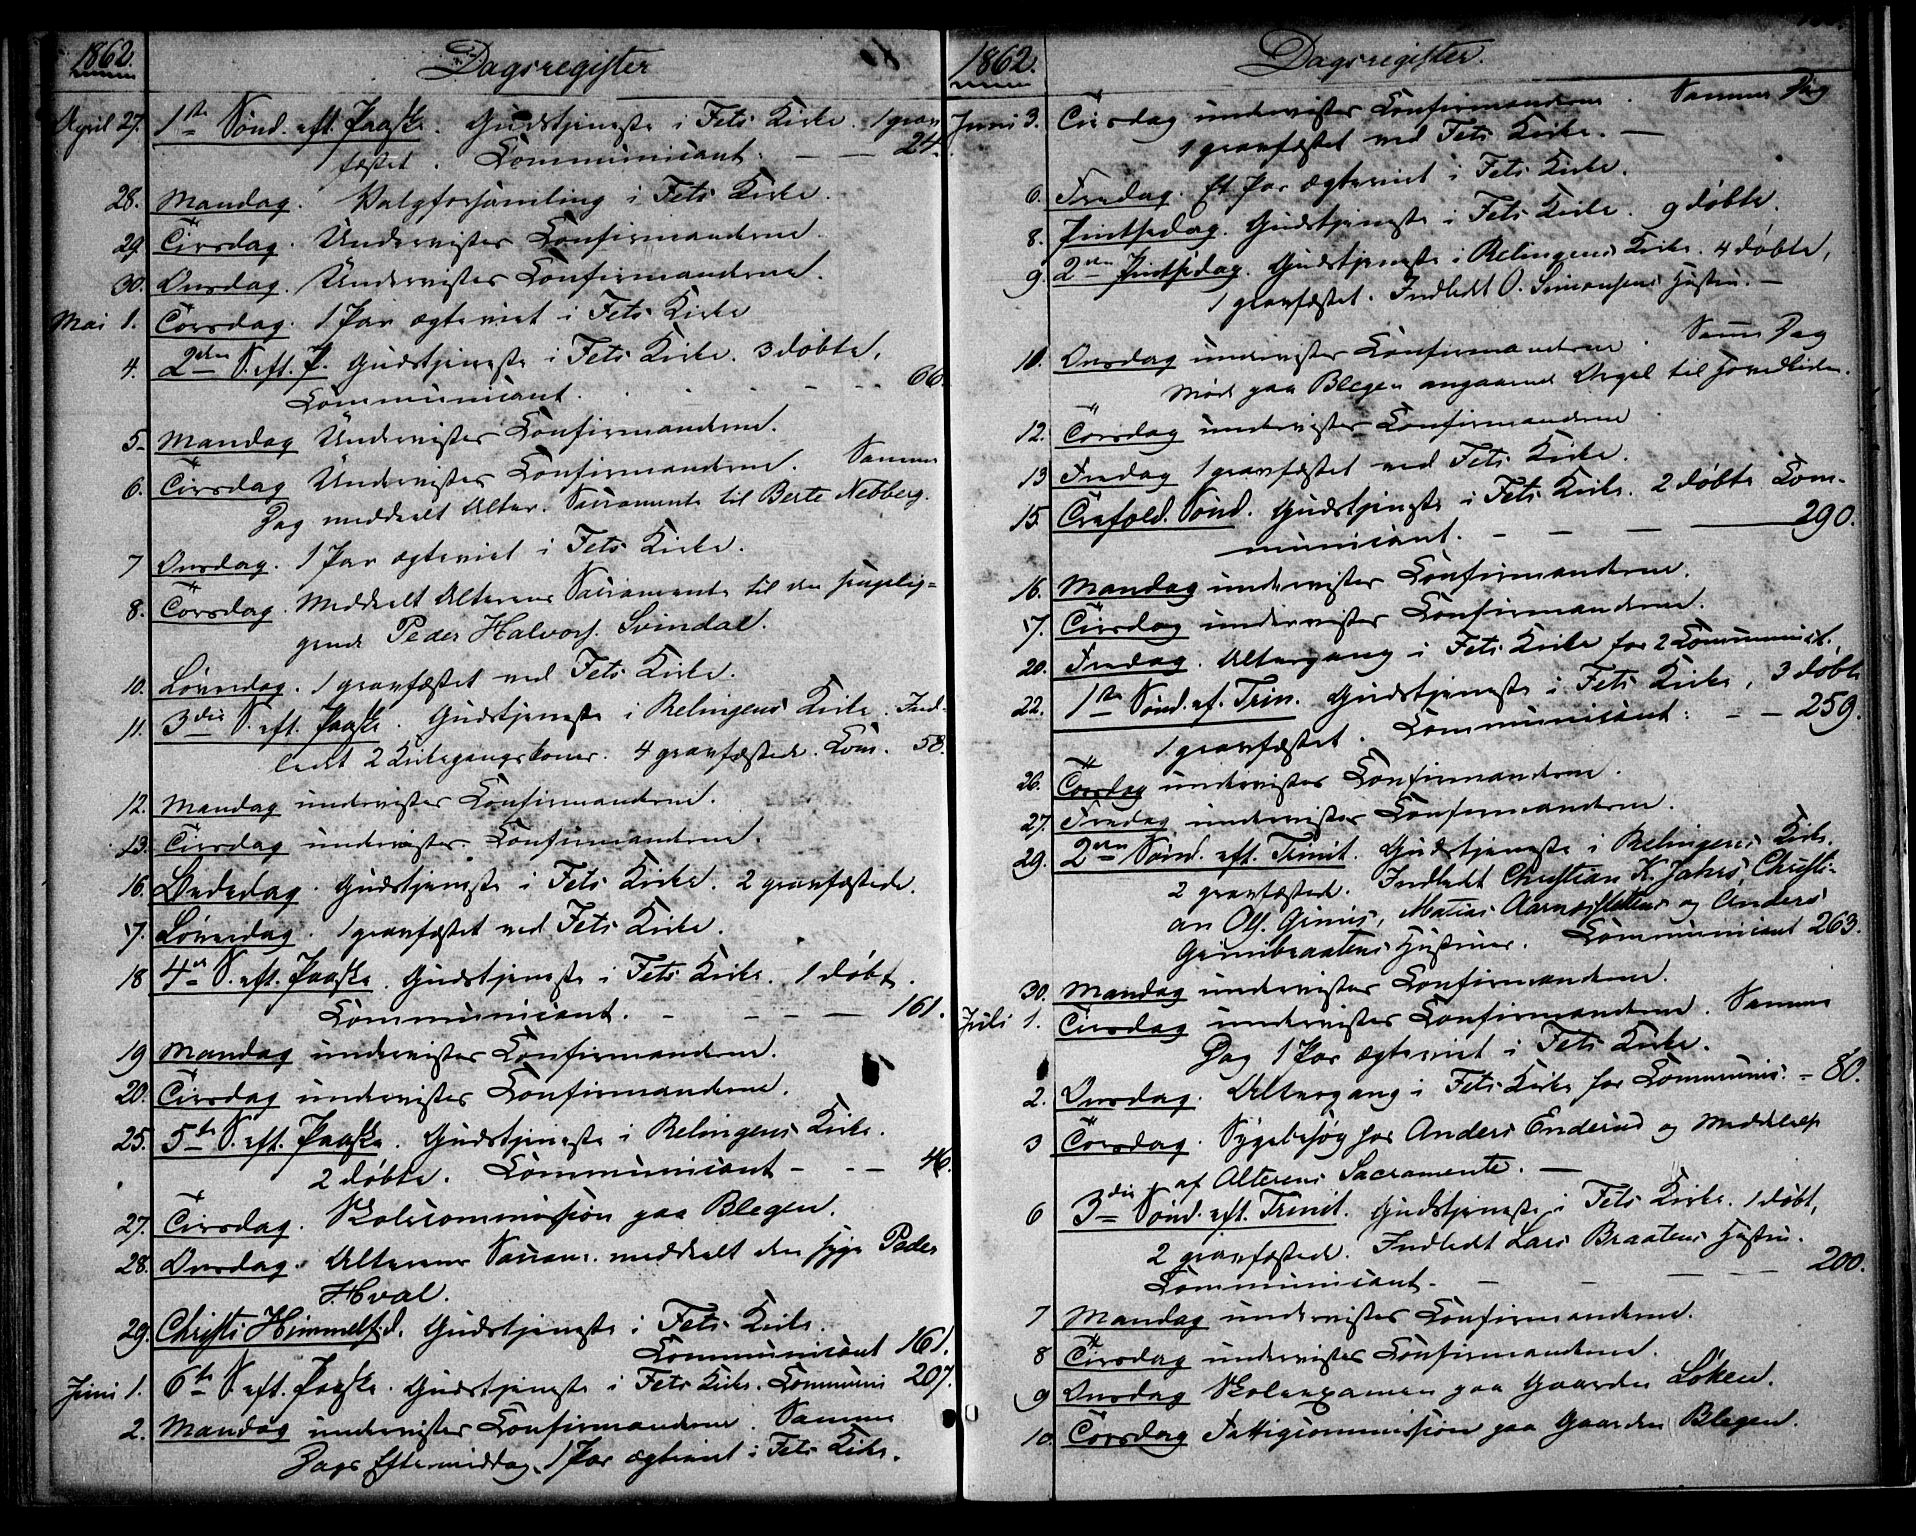 1862.
Dagsregister
April 27. 1ste Sønd. eft. Paaske. Gudstjeneste i Fets Kirke. 1 grav
fæstet. Communicant. — — 24.
28. Mandag. Valgforsamling i Fets Kirke.
29. Tirsdag. Underviist Confirmanderne.
30. Onsdag. Underviist Confirmanderne.
Mai 1. Torsdag. 1 Par ægteviet i Fets Kirke
4. 2den S. eft. P. Gudstjeneste i Fets Kirke. 3 døbte.
Communicant. - - - 66.
5. Mandag Underviist Confirmanderne.
6. Tirsdag Underviist Confirmanderne. Samme
Dag meddeelt Alter. Sacramente til Berte Nebberg.
7 Onsdag. 1 Par ægteviet i Fets Kirke.
8. Torsdag. Meddeelt Alterens Sacramente til den sengelig-
gende Peder Halvors. Svindal.
10. Løverdag. 1 gravfæstet ved Fets Kirke.
11. 3die S. eft. Paaske. Gudstjeneste i Relingens Kirke. Ind-
ledt 2 Kirkegangskoner. 4 gravfæstede. Com. 58.
12. Mandag underviist Confirmanderne.
13. Tirsdag underviist Confirmanderne.
16. Bededag. Gudstjeneste i Fets Kirke. 2 gravfæstede.
17. Løverdag. 1 gravfæstet ved Fets Kirke.
18 4de S. eft. Paaske. Gudstjeneste i Fets Kirke. 1 døbt.
Communicant. - - - — 161.
19 Mandag underviist Confirmanderne.
20. Tirsdag underviist Confirmanderne.
25. 5te S. eft. Paaske. Gudstjeneste i Relingens Kirke.
2 døbte. Communicant - - — 46.
27. Tirsdag. Skolecommission paa Blegen.
28. Onsdag. Alterens Sacram. meddeelt den syge Peder
Hval.
29. Christi Himmelf.d. Gudstjeneste i Fets Kirke.
Communicant 161.
Juni 1. 6te S. eft. Paaske. Gudstjeneste i Fets Kirke. Communi 207.
2. Mandag underviist Confirmanderne. Samme
Dags Eftermiddag 1 Par ægteviet i Fets Kirke.
1862.
Dagsregister.
Juni 3. Tirsdag underviist Confirmanderne. Samme Dag
1 gravfæstet ved Fets Kirke. —
6. Fredag. Et Par ægteviet i Fets Kirke.
8. Pintsedag. Gudstjeneste i Fets Kirke. 9 døbte.
9. 2den Pintsedag. Gudstjeneste i Relingens Kirke. 4 døbte,
1 gravfæstet. Indledt O. Simonsens Hustru. —
10. Onsdag underviist Confirmanderne. Samme Dag
Møde paa Blegen angaaende Orgel til Hovedkirken.
12. Torsdag underviist Confirmanderne
13 Fredag 1 gravfæstet ved Fets Kirke.
15. Trefold. Sønd. Gudstjeneste i Fets Kirke. 2 døbte Com-
municant. - - — 290.
16. Mandag underviist Confirmanderne.
17. Tirsdag underviist Confirmanderne.
20. Fredag. Altergang i Fets Kirke for 2 Communicat.
22. 1ste Sønd. ef. Trin. Gudstjeneste i Fets Kirke, 3 døbte
1 gravfæstet. Communicant: - — 259.
26. Torsdag underviist Confirmanderne.
27. Fredag underviist Confirmanderne.
29. 2den Sønd. eft. Trinit. Gudstjeneste i Relingens Kirke.
2 gravfæstede. Indledt Christian K. Jahrs, Christi-
an Ols. Gunis, Matias Aarnesslettens og Anders
Grinibraatens Hustruer. Communicant 263.
30. Mandag underviist Confirmanderne.
Juli 1. Tirsdag underviist Confirmanderne. Samme
Dag 1 Par ægteviet i Fets Kirke.
2. Onsdag. Altergang i Fets Kirke for Communic. - 80.
3 Torsdag. Sygebesøg hos Anders Enderud og Meddelelse
af Alterens Sacramente. —
6 3die Sønd. eft. Trinit. Gudstjeneste i Fets Kirke. 1 døbt,
2 gravfæstede. Indledt Lars Braatens Hustru.
Communicant. - - — — 200.
7 Mandag underviist Confirmanderne.
8 Tirsdag underviist Confirmanderne.
9 Onsdag Skoleexamen paa Gaarden Løken.
10. Torsdag Fattigcommission paa Gaarden Blegen.